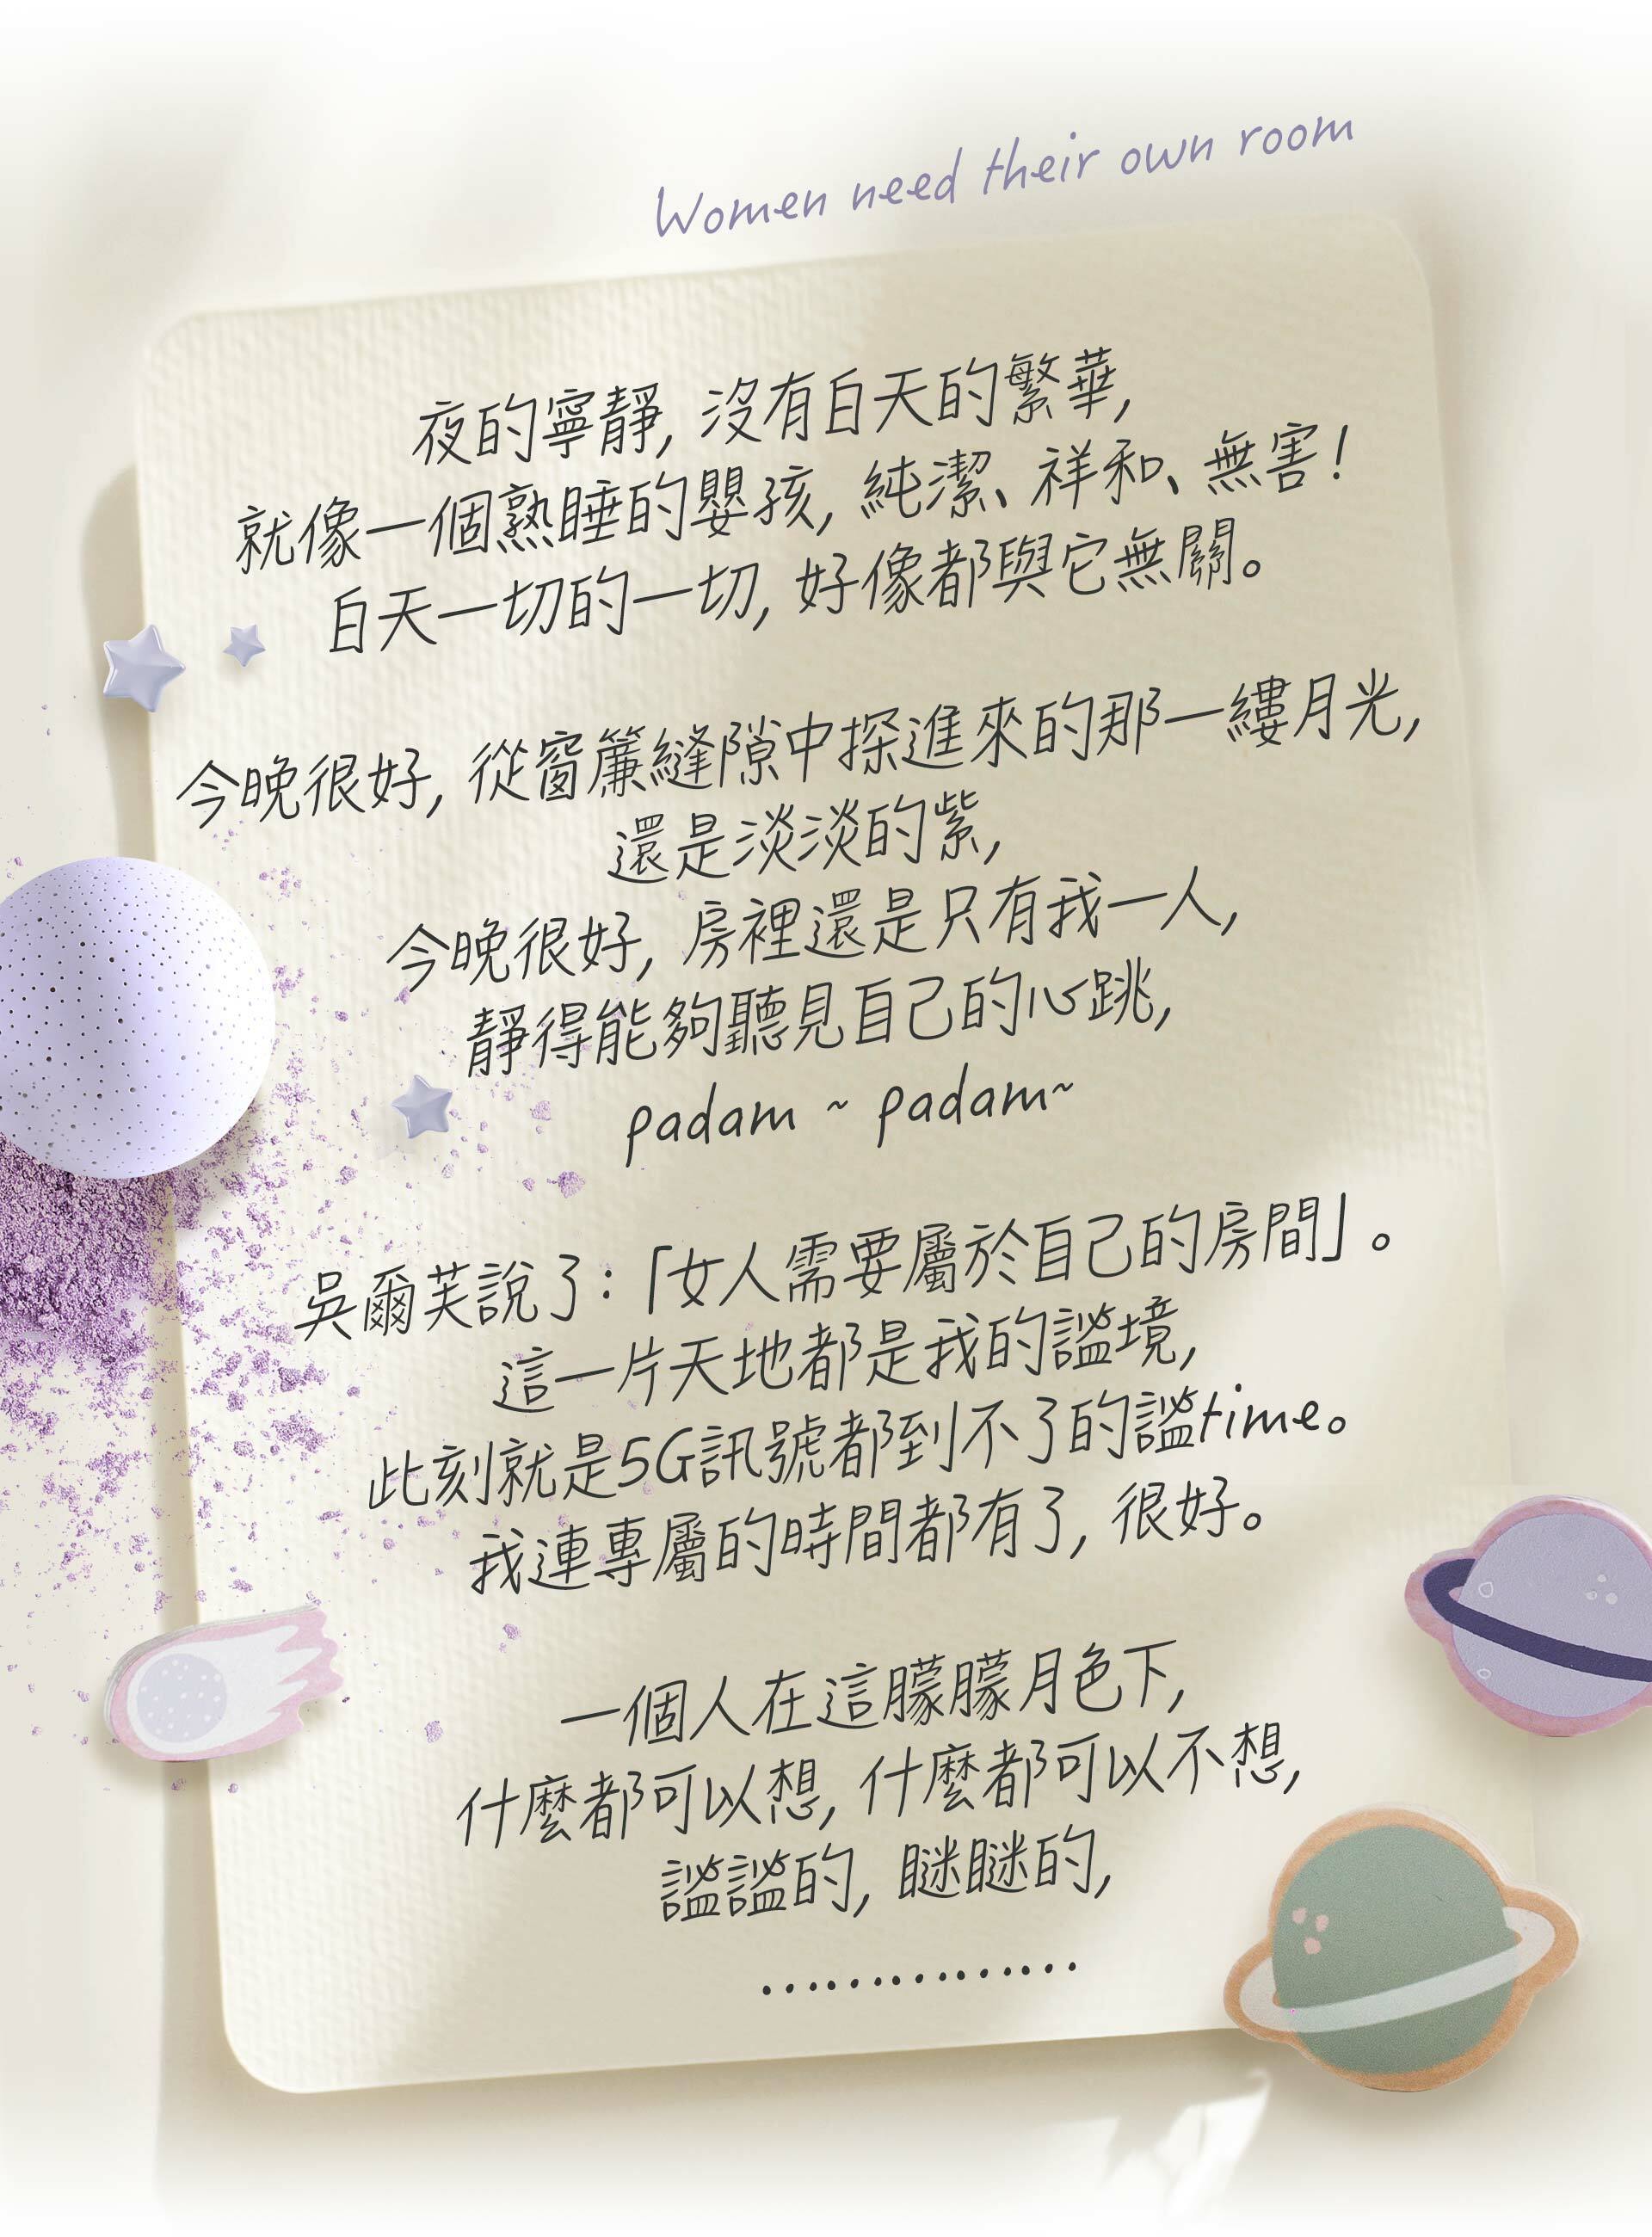 Women need their own room
夜的寧靜, 沒有白天的繁華,
就像一個熟睡的嬰孩, 純潔、祥和、無害!
白天一切的一切, 好像都與它無關。
今晚很好, 從窗簾縫隙中探進來的那一縷月光,
還是淡淡的紫,
今晚很好, 房裡還是只有我一人,
靜得能夠聽見自己的心跳,
padam ~ padam~
吳爾芙說了:「女人需要屬於自己的房間」。
這一片天地都是我的謐境,
此刻就是5G訊號都到不了的謐time。
我連專屬的時間都有了, 很好。
一個人在這朦朦月色下,
什麼都可以想, 什麼都可以不想,
謐謐的, 瞇瞇的,
...............